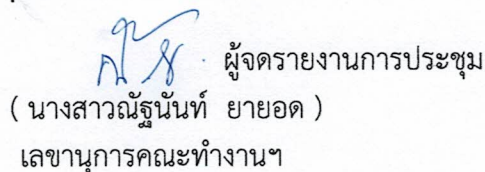 ผู้จดรายงานการประชุม
( นางสาวณัฐนันท์ ยายอด )
เลขานุการคณะทำงานฯ